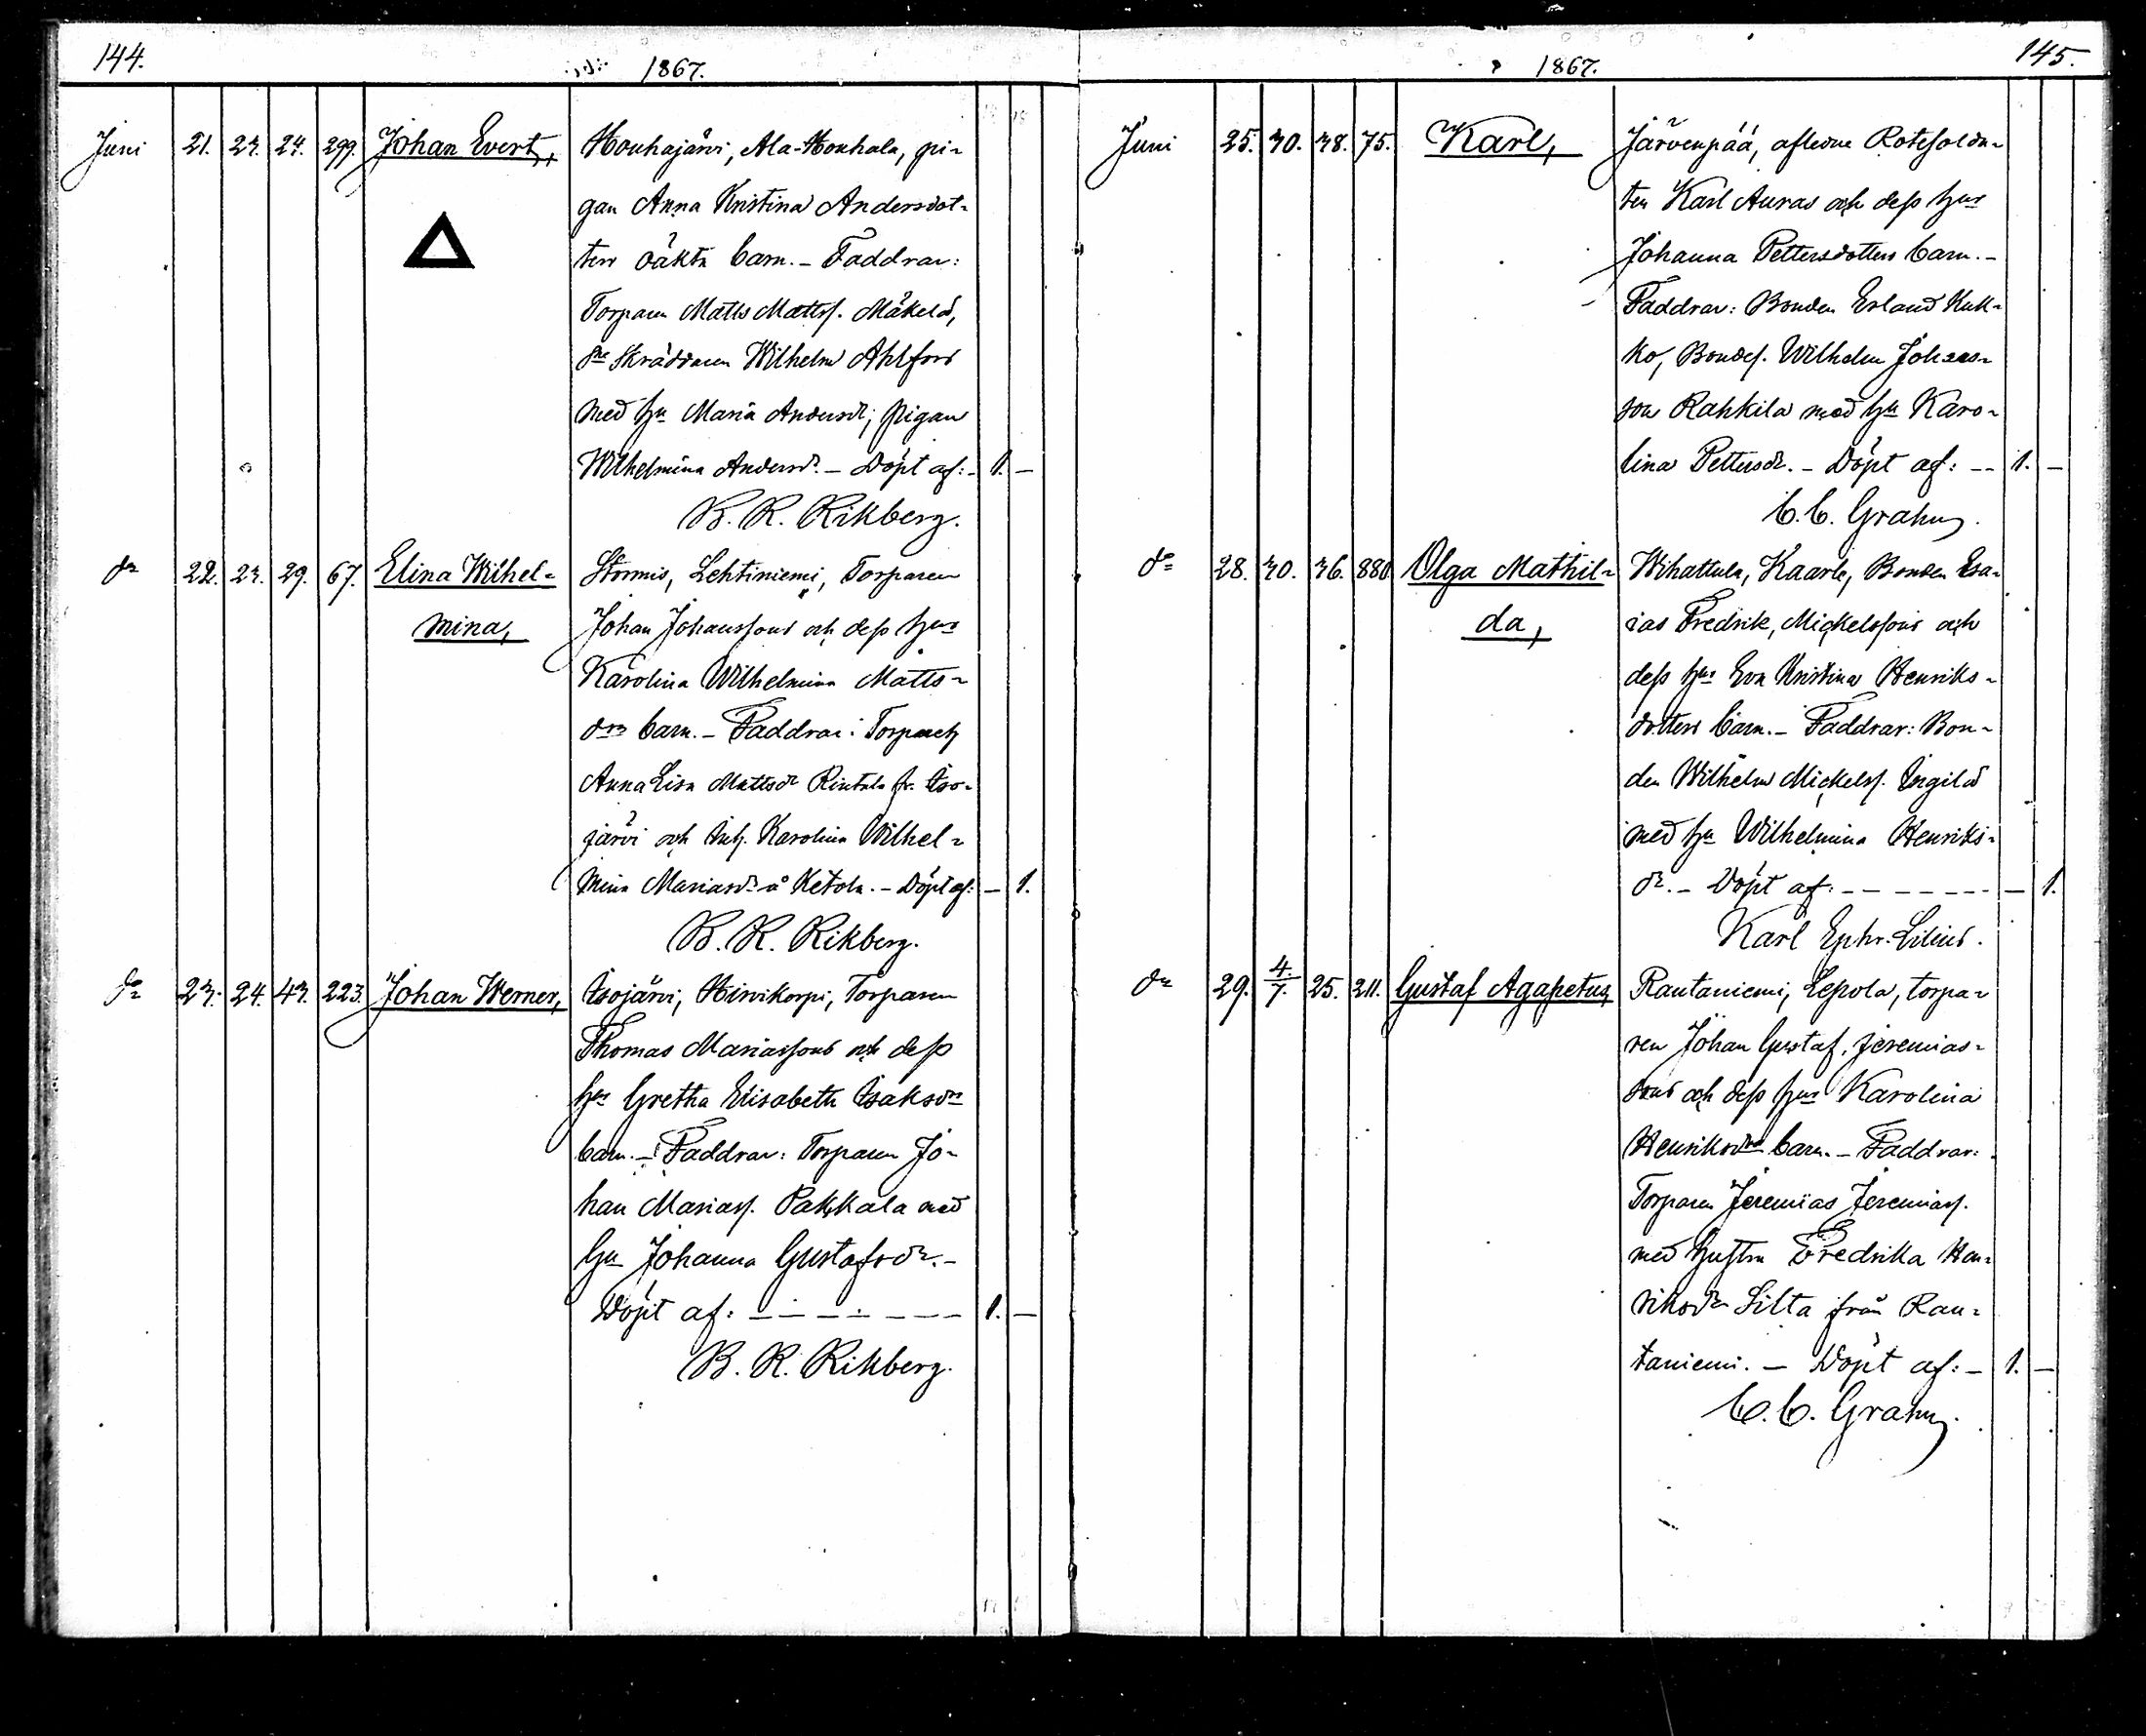 144.
1867.
Juni 21. 23. 24. 299. Johan Evert, Houhajärvi, Ala-Houhala, pi-
gan Anna Kristina Andersdot-
ters oäkta barn. - Faddrar:
Torparen Matts Mattss. Mäkelä,
Skräddaren Wilhelm Ahlfors
med hu Maria Andersdr, pigan
Wilhelmina Andersdr. - Döpt af: - 1. -
B. R. Rikberg.
do 22. 23. 29. 67. Elina Wilhel- Stormis, Lehtiniemi, Torparen
mina, Johan Johanssons och dess hus
Karolina Wilhelmina Matts-
drs barn. - Faddrar: Torpareh
Anna Lisa Mattsdr Rintala fr. Iso-
järvi och Inh. Karolina Wilhel-
mina Mariasdr å Ketola. - Döpt af: - 1.
B. R. Rikberg.
do 23. 24. 43. 223. Johan Werner, Isojärvi, Hirvikorpi, Torparen
Thomas Mariassons och dess
hus Gretha Elisabeth Isaksdrs
barn. - Faddrar: Torparen Jo-
han Mariass. Pakkala med
hu Johanna Gustafsdr. -
Döpt af: - - - - - - - 1. -
B. R. Rikberg.
145.
1867.
Juni 25. 30. 38. 75. Karl, Järvenpää, afledne Rotesolda-
ten Karl Auras och dess hus
Johanna Pettersdotters barn. -
Faddrar: Bonden Erland Kuk-
ko, Bondes. Wilhelm Johans-
son Rahkila med hu Karo-
lina Pettersdr. - Döpt af: - - 1. -
C. C. Grahn.
do 28. 30. 36. 880. Olga Mathil- Wihattula, Kaarle, Bonden Esa-
da, ias Fredrik, Mickelssons och
dess hus Eva Kristina Henriks-
dotters barn. - Faddrar: Bon-
den Wilhelm Mickelss. Ingilä
med hu Wilhelmina Henriks-
dr. - Döpt af: - - - - - - - - 1.
Karl Ephr. Lilius.
do 29. 4./7. 25. 211. Gustaf Agapetus, Rautaniemi, Lepola, torpa-
ren Johan Gustaf, Jeremias-
sons och dess hus Karolina
Henriksdrs barn. - Faddrar:
Torparen Jeremias Jeremiass.
med hustru Fredrika Hen-
riksdr Silta från Rau-
taniemi. - Döpt af: - 1. -
C. C. Grahn.